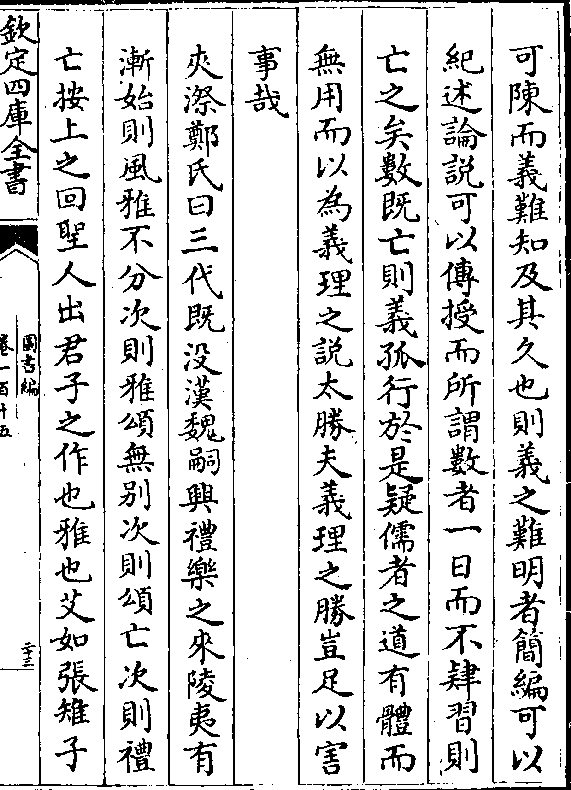 可陳而義難知及其久也則義之難明者簡編可以
紀述論説可以傳授而所謂數者一日而不肄習則
亡之矣數既亡則義孤行於是疑儒者之道有體而
無用而以為義理之説太勝夫義理之勝豈足以害
事哉
夾漈鄭氏曰三代既没漢魏嗣興禮樂之來陵夷有
漸始則風雅不分次則雅頌無别次則頌亡次則禮
亡按上之回聖人出君子之作也雅也艾如張雉子
欽定四庫全書
圖書編
卷一百十五
二十三